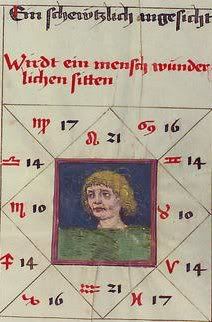 Ein schewtzlich angesicht
Wirdt ein mensch wunder
lichen sitten
♍ 17 ♌ 21 ♋ 16
♎ 14 ♊ 14
♏ 10 ♉ 10
♐ 14 ♈ 14
♑ 16 ♒ 21 ♓ 17